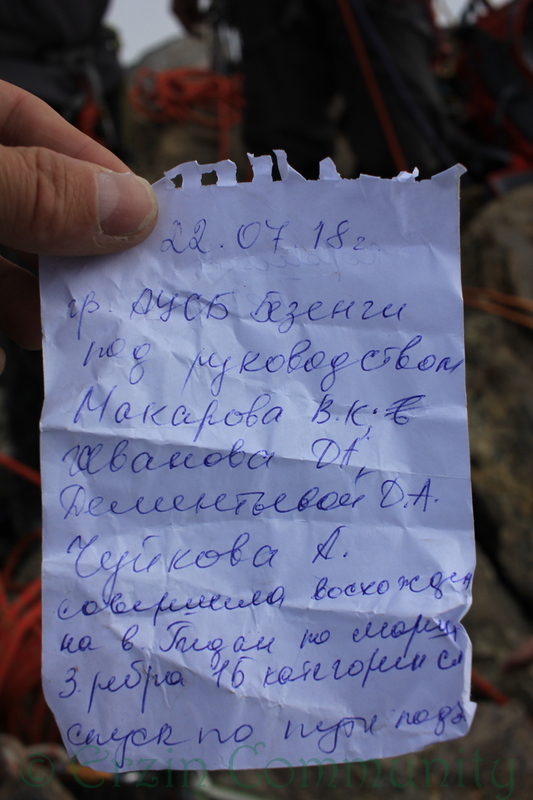 22.07.18г.
гр. АУСБ Безенги
под руководством
Макарова В.К.,
Иванова Д.А.,
Дементьевой Д.А.
Чуйкова А.
совершила восхожден
на в. Гидан по марш
З. ребра 1Б категории сл
спуск по пути подъ
© Erzin Community